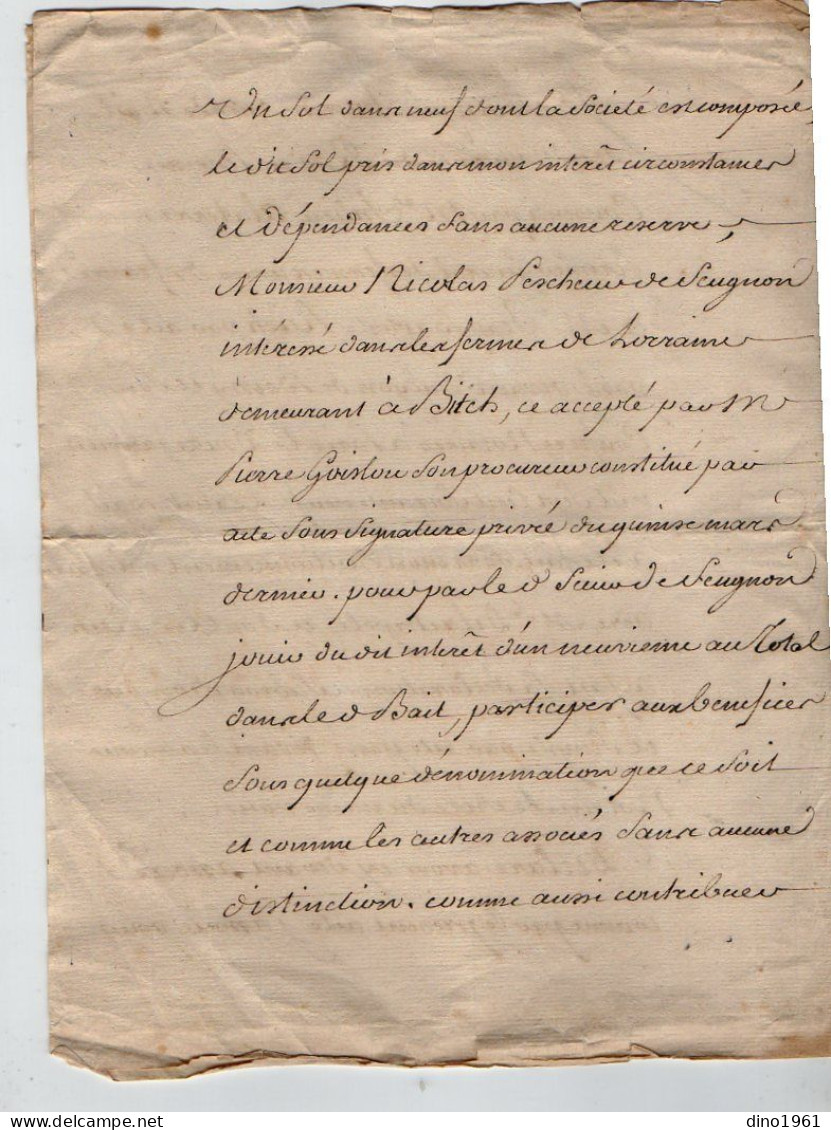 Un Sol dans neuf dont la Société est composée,
le dit Sol pris dans mon interêt circonstances
et dépendances sans aucune reserve,
Monsieur Nicolas Pescheur de Seugnon
intéressé dans les fermes de Lorraine
demeurant à Bitch, ce accepté par M
Pierre Goislou Son procureur constitué par
acte Sous Signature privée du quinze mars
dernier. pour par le d Sieur de Seugnon
jouir du dit interêt d'un neuvieme au Total
dans le d Bail, participer aux benefices
Sous quelque dénomination que ce Soit
et comme les autres associés Sans aucune
distinction. comme aussi contribuer
dino1961